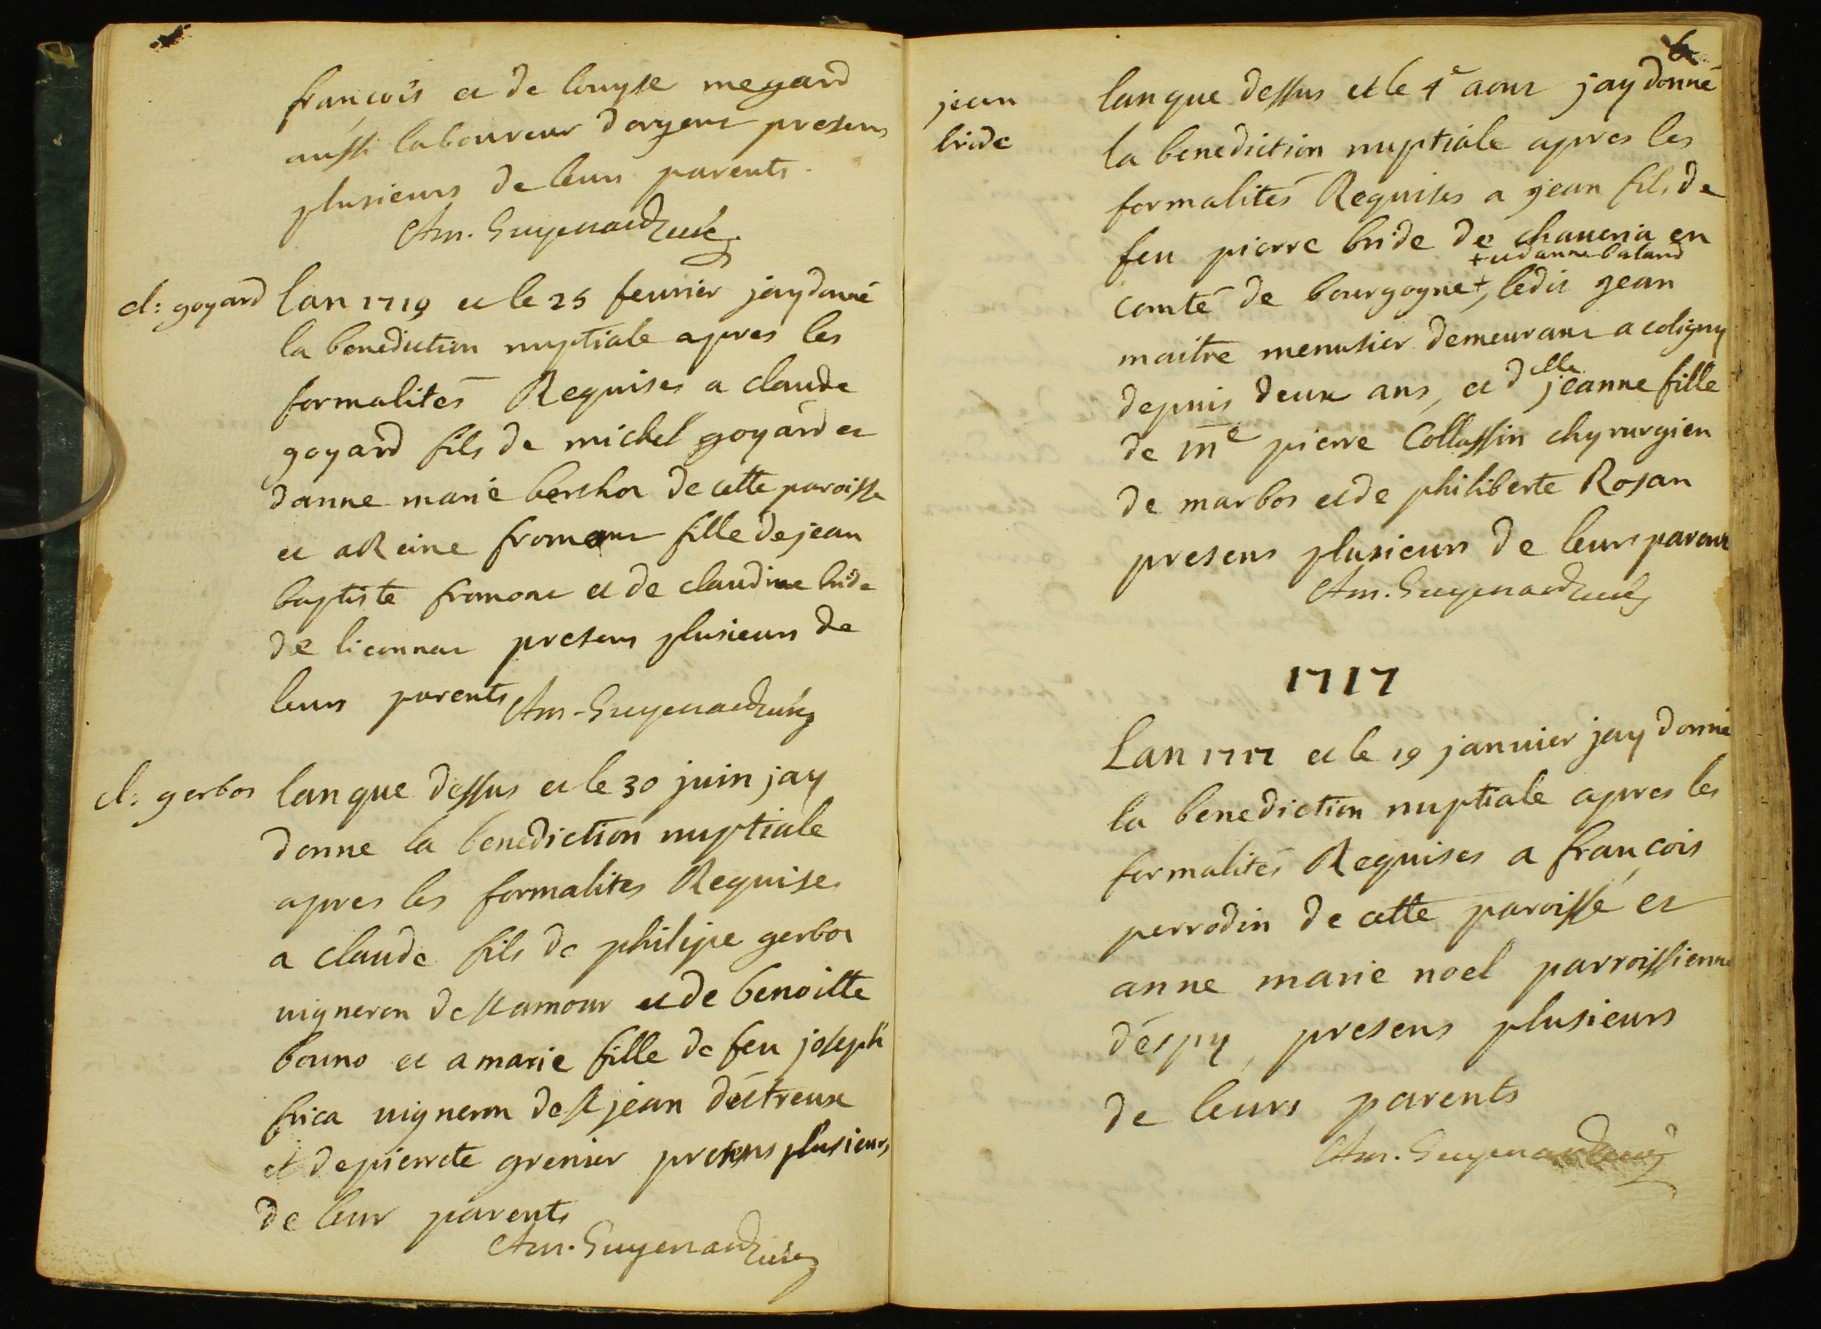 francois et de louyse megard
aussi laboureur dargent presens
plusieurs de leurs parents.
Am. Guyenard curé
cl: goyard
lan 1719 et le 25 feurier jay donné
la benediction nuptiale apres les
formalites Requises a claude
goyard fils de michel goyard et
danne marie berthot de cette paroisse
et a Reine froment fille de jean
baptiste fromont et de claudine bride
de liconnat presens plusieurs de
leurs parents Am. Guyenard curé
cl: gerbot
lan que dessus et le 30 juin jay
donne la benediction nuptiale
apres les formalites Requises
a claude fils de philipe gerbot
uigneron de st amour et de benoitte
bouno et a marie fille de feu joseph
frica uigneron de st jean détreux
et de pierrete grenier presens plusieurs
de leur parents
Am. Guyenard curé
6
jean
bride
lan que dessus et le 4e aout jay donné
la benediction nuptiale apres les
formalites Requises a jean fils de
feu pierre bride de chaueria en
+ et danne baland
comté de bourgogne +, ledit jean
maitre menusier demeurant a coligny
depuis deux ans, et dlle jeanne fille
de me pierre Collassin chyrurgien
de marbos et de philiberte Rosan
presens plusieurs de leurs parent
Am. Guyenard curé
1717
Lan 1717 et le 19 januier jay donné
la benediction nuptiale apres les
formalites Requises a francois
perrodin de cette paroisse et
anne marie noel parroissienne
déspy, presens plusieurs
de leurs parents
Am. Guyenard curé